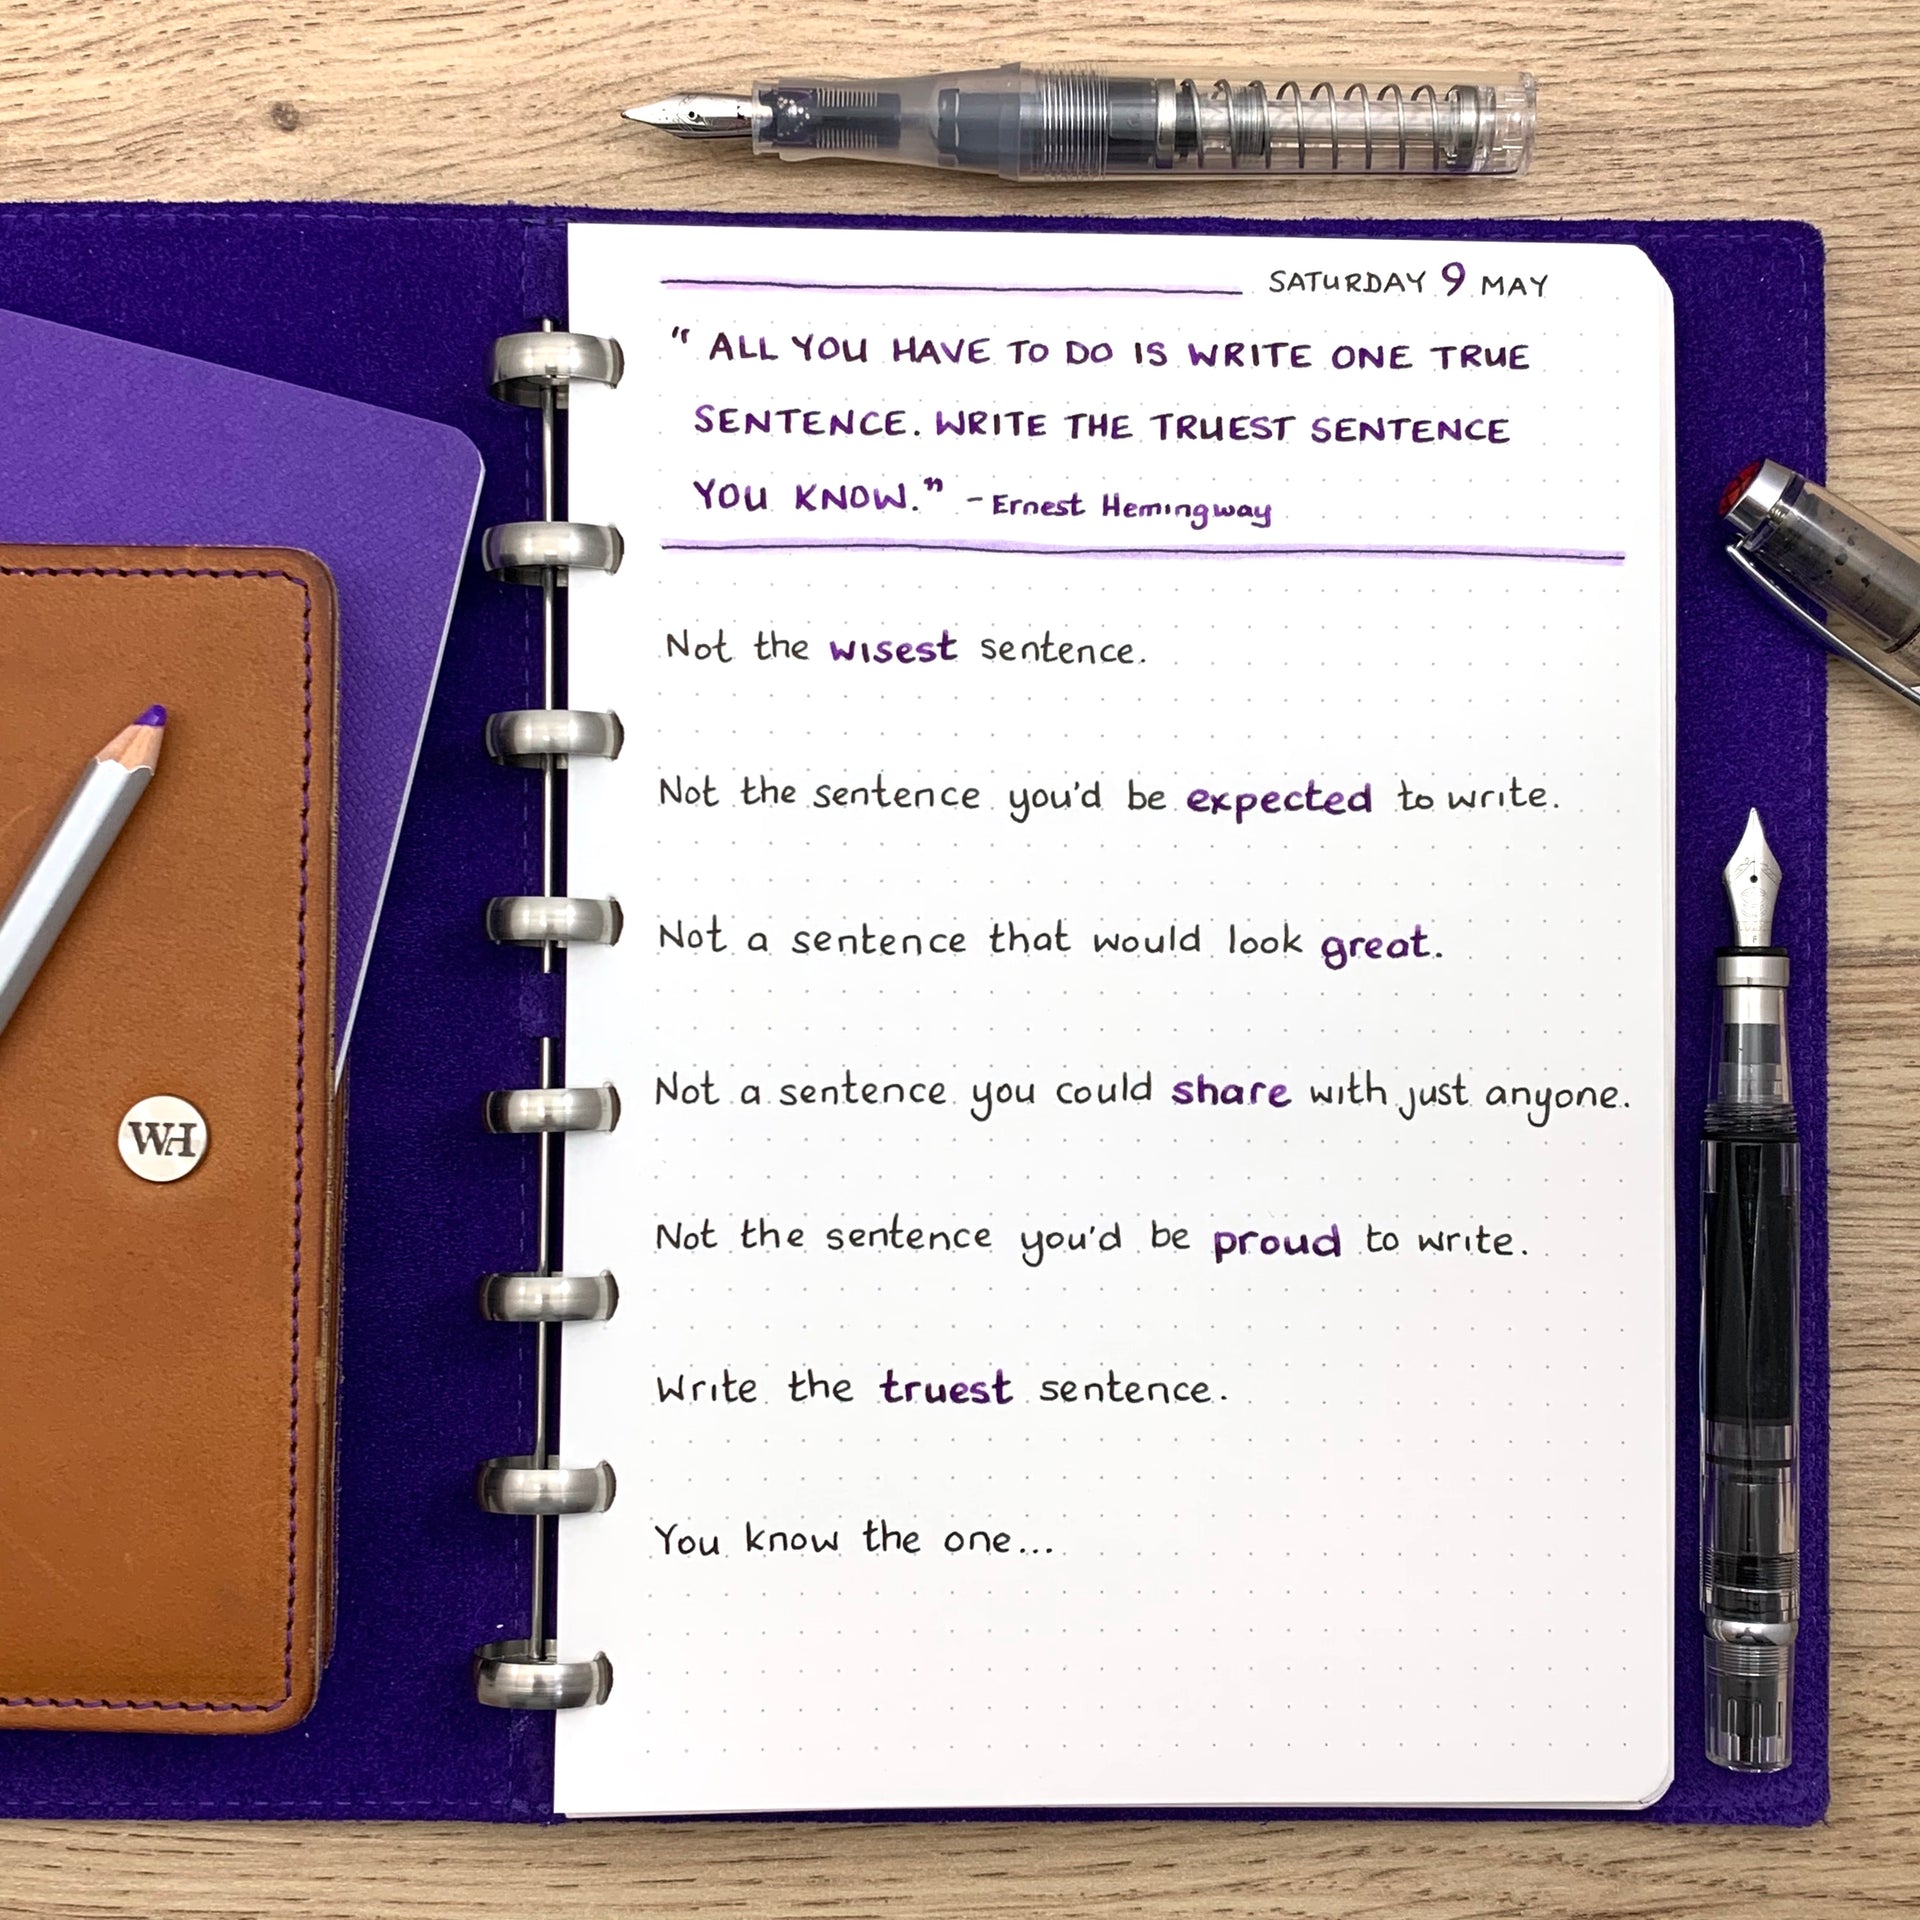 SATURDAY 9 MAY
“ ALL YOU HAVE TO DO IS WRITE ONE TRUE
SENTENCE. WRITE THE TRUEST SENTENCE
YOU KNOW.” - Ernest Hemingway
Not the wisest sentence.
Not the sentence you'd be expected to write.
Not a sentence that would look great.
Not a sentence you could share with just anyone.
Not the sentence you'd be proud to write.
Write the truest sentence.
You know the one...
WH